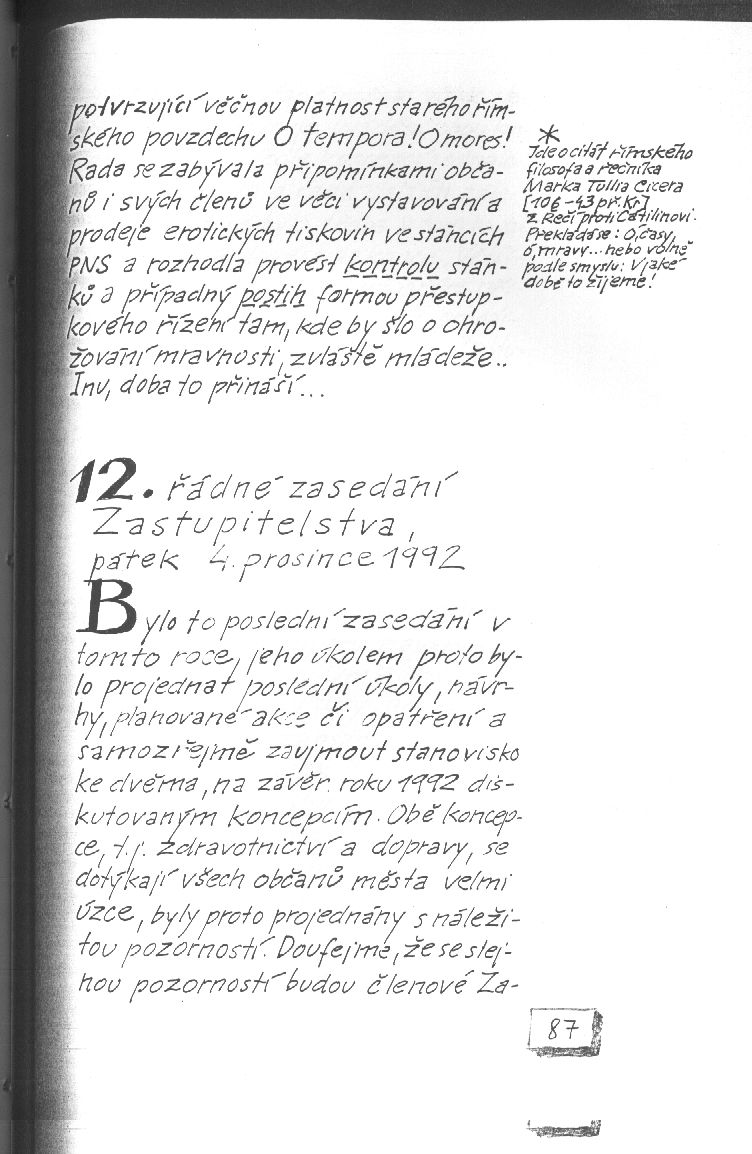 potvrzující věčnou platnost starého řím-
ského povzdechu O tempora! O mores!
Rada se zabývala připomínkami obča-
nů i svých členů ve věci vystavování a
prodeje erotických tiskovin ve stáncích
PNS a rozhodla provést kontrolu stán-
ků a případný postih formou přestup-
kového řízení tam, kde by šlo o ohro-
žování mravnosti, zvláště mládeže..
Inu, doba to přináší...
*
Jde o citát římského
filosofa a řečníka
Marka Tullia Cicera
[106-43 př. Kr]
z Řečí proti Catilinovi.
Překládá se: Ó, časy,
ó, mravy... nebo volně
podle smyslu: V jaké
době to žijeme!
12. řádné zasedání
Zastupitelstva,
pátek 4. prosince 1992
Bylo to poslední zasedání v
tomto roce, jeho úkolem proto by-
lo projednat poslední úkoly, návr-
hy, plánované akce či opatření a
samozřejmě zaujmout stanovisko
ke dvěma, na závěr roku 1992 dis-
kutovaným koncepcím. Obě koncep-
ce, t.j. zdravotnictví a dopravy, se
dotýkají všech občanů města velmi
úzce, byly proto projednány s náleži-
tou pozorností. Doufejme, že se stej-
nou pozorností budou členové Za-
87